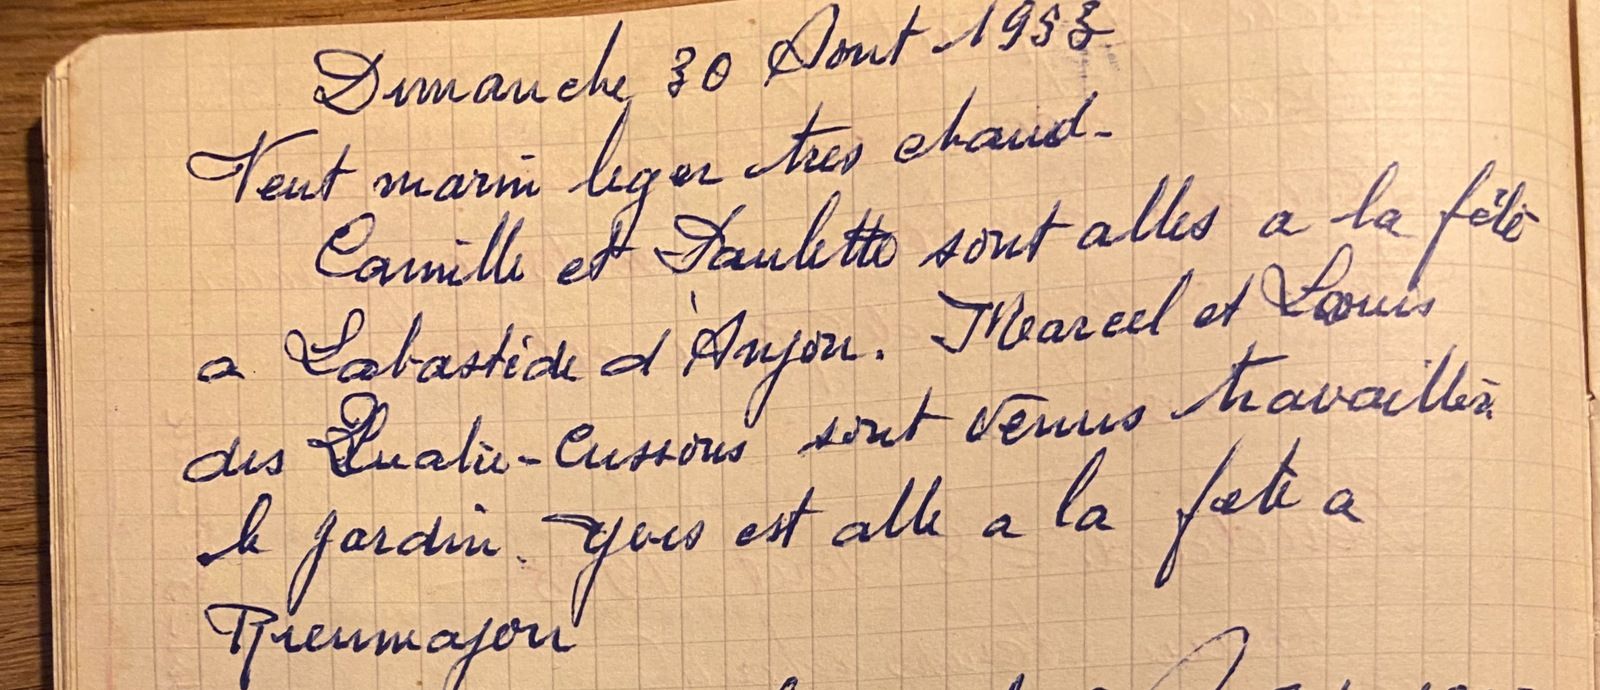 Dimanche 30 Aout 1953
Vent marin leger tres chaud-
Camille et Paulette sont alles a la fête
a Labastide d'Anjou. Marcel et Louis
des Quatre-Cussous sont venus travailler
le jardin. Yves est alle a la fete a
Rieumajou